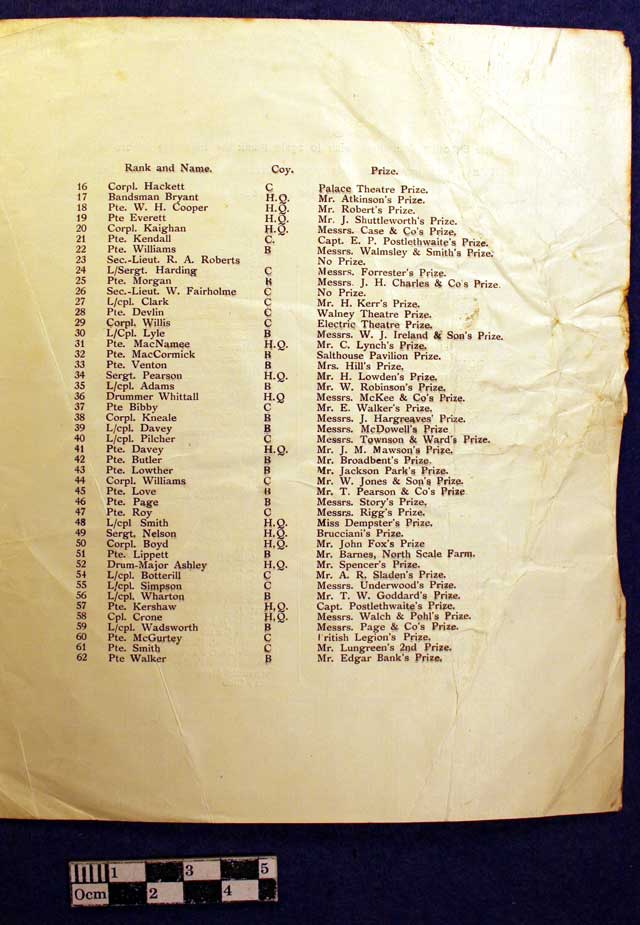 Rank and Name. Coy. Prize.
16 Corpl. Hackett C Palace Theatre Prize.
17 Bandsman Bryant H.Q. Mr. Atkinson's Prize.
18 Pte. W. H. Cooper H.Q. Mr. Robert's Prize.
19 Pte Everett H.Q. Mr. J. Shuttleworth's Prize.
20 Corpl. Kaighan H.Q. Messrs. Case & Co's Prize,
21 Pte. Kendall C. Capt. E. P. Postlethwaite's Prize.
22 Pte. Williams B Messrs. Walmsley & Smith's Prize.
23 Sec.-Lieut. R. A. Roberts No Prize.
24 L/Sergt. Harding C Messrs. Forrester's Prize.
25 Pte. Morgan B Messrs. J. H. Charles & Co's Prize.
26 Sec.-Lieut. W. Fairholme C No Prize.
27 L/cpl. Clark C Mr. H. Kerr's Prize.
28 Pte. Devlin C Walney Theatre Prize.
29 Corpl. Willis C Electric Theatre Prize.
30 L/Cpl. Lyle B Messrs. W. J. Ireland & Son's Prize.
31 Pte. MacNamee H.Q. Mr. C. Lynch's Prize.
32 Pte. MacCormick B Salthouse Pavilion Prize.
33 Pte. Venton B Mrs. Hill's Prize,
34 Sergt. Pearson H.Q. Mr. H. Lowden's Prize.
35 L/Cpl. Adams B Mr. W. Robinson's Prize.
36 Drummer Whittall H.Q Messrs. McKee & Co's Prize.
37 Pte Bibby C Mr. E. Walker's Prize.
38 Corpl. Kneale B Messrs. J. Hargreaves' Prize.
39 L/cpl. Davey B Messrs. McDowell's Prize
40 L/cpl. Pilcher C Messrs. Townson & Ward's Prize.
41 Pte. Davey H.Q. Mr. J. M. Mawson's Prize.
42 Pte. Butler B Mr. Broadbent's Prize.
43 Pte. Lowther B Mr. Jackson Park's Prize.
44 Corpl. Williams C Mr. W. Jones & Son's Prize.
45 Pte. Love B Mr. T. Pearson & Co's Prize
46 Pte. Page B Messrs. Story's Prize.
47 Pte. Roy C Messrs. Rigg's Prize.
48 L/cpl Smith H.Q. Miss Dempster's Prize.
49 Sergt. Nelson H.Q. Brucciani's Prize.
50 Corpl. Boyd H.Q. Mr. John Fox's Prize
51 Pte. Lippett B Mr. Barnes, North Scale Farm.
52 Drum-Major Ashley H.Q. Mr. Spencer's Prize.
54 L/cpl. Botterill C Mr. A. R. Sladen's Prize.
55 L/cpl. Simpson C Messrs. Underwood's Prize.
56 L/cpl. Wharton B Mr. T. W. Goddard's Prize.
57 Pte. Kershaw H.Q. Capt. Postlethwaite's Prize.
58 Cpl. Crone H.Q. Messrs. Walch & Pohl's Prize.
59 L/cpl. Wadsworth B Messrs. Page & Co's Prize.
60 Pte. McGurtey C British Legion's Prize.
61 Pte. Smith C Mr. Lungreen's 2nd Prize.
62 Pte Walker B Mr. Edgar Bank's Prize.
0cm 1 2 3 4 5